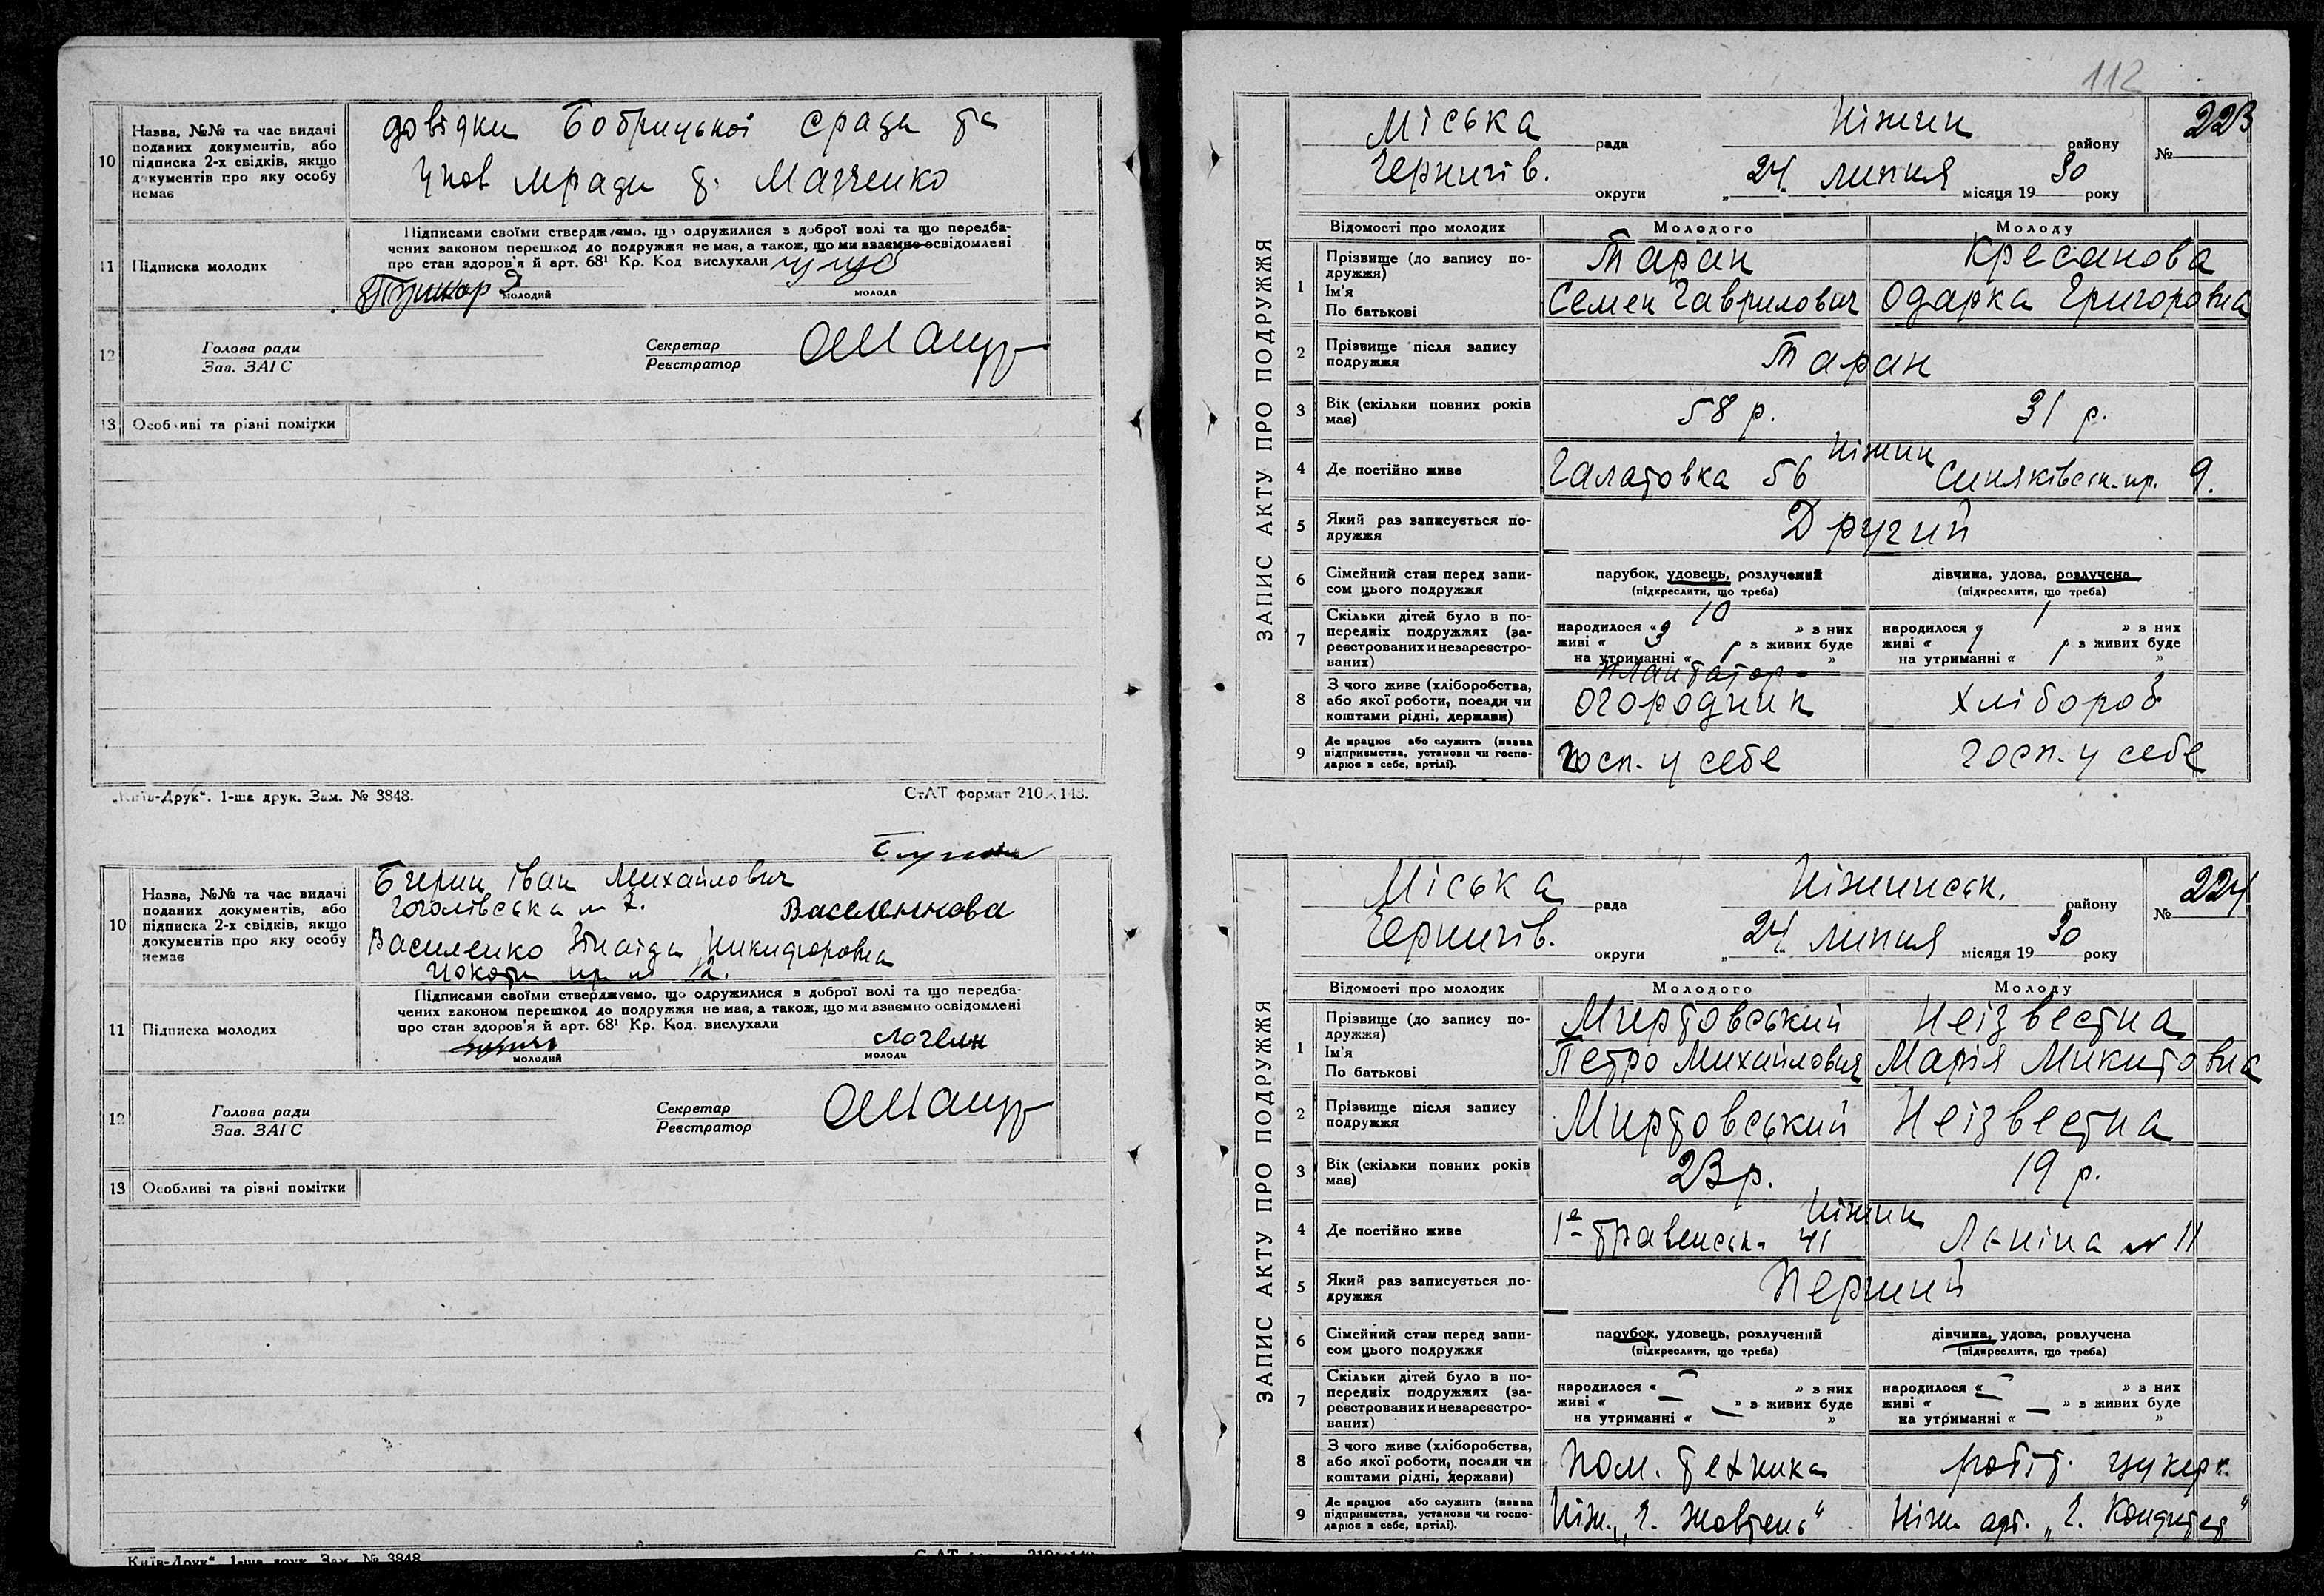 10 Назва, №№ та час видачі поданих документів, або підписка 2-х свідків, якщо документів про яку особу немає
довідки Бобрицької сради та
міськ
11 Підписка молодих
Підписами своїми стверджуємо, що одружилися з доброї волі та що передба-
чених законом перешкод до подружжя не має, а також, що ми взаємно освідомлені
про стан здоров'я й арт. 68¹ Кр. Код вислухали
молодий
молода
12 Голова ради
Зав. ЗАГС
Секретар
Реєстратор
13 Особливі та різні помітки
„Київ-Друк“. 1-ша друк. Зам. № 3848.
СтАТ формат 210×148.
10 Назва, №№ та час видачі поданих документів, або підписка 2-х свідків, якщо документів про яку особу немає
Іван Михайлович
Гоголівська № 7.
Василенко Зінаїда Никифоровна
пр № 12.
11 Підписка молодих
Підписами своїми стверджуємо, що одружилися з доброї волі та що передба-
чених законом перешкод до подружжя не має, а також, що ми взаємно освідомлені
про стан здоров'я й арт. 68¹ Кр. Код. вислухали
молодий
молода
12 Голова ради
Зав. ЗАГС
Секретар
Реєстратор
13 Особливі та різні помітки
Київ-Друк“ 1-ша друк. Зам. № 3848
112
ЗАПИС АКТУ ПРО ПОДРУЖЖЯ
Міська рада Ніжин району № 223
Чернигів. округи „24„ липня місяця 1930 року
Відомості про молодих Молодого Молоду
1 Прізвище (до запису подружжя) Таран Кресанова
Ім'я По батькові Семен Гаврилович Одарка Григоровна
2 Прізвище після запису подружжя Таран
3 Вік (скільки повних років має) 58 р. 31 р.
4 Де постійно живе Ніжин
Галатовка 56 Синяківськ. пр. 9.
5 Який раз записується подружжя Другий
6 Сімейний стан перед записом цього подружжя парубок, удовець, розлучений дівчина, удова, розлучена
(підкреслити, що треба) (підкреслити, що треба)
7 Скільки дітей було в попередніх подружжях (зареєстрованих и незареєстрованих)
народилося « 10 » з них народилося « 1 » з них
живі « 3 » з живих буде живі « 1 » з живих буде
на утриманні « 1 » на утриманні « 1 »
8 З чого живе (хліборобства, або якої роботи, посади чи коштами рідні, держави) плантатор-
огородник хлібороб
9 Де працює або служить (назва підприємства, установи чи господарює в себе, артілі). госп. у себе госп. у себе
ЗАПИС АКТУ ПРО ПОДРУЖЖЯ
Міська рада Ніжинськ. району № 224
Чернигів. округи „24„ липня місяця 1930 року
Відомості про молодих Молодого Молоду
1 Прізвище (до запису подружжя) Миртовський Неізвестна
Ім'я По батькові Петро Михайлович Марія Микитовна
2 Прізвище після запису подружжя Миртовський Неізвестна
3 Вік (скільки повних років має) 23 р. 19 р.
4 Де постійно живе Ніжин
1е травенськ. 41 Леніна № 11
5 Який раз записується подружжя Перший
6 Сімейний стан перед записом цього подружжя парубок, удовець, розлучений дівчина, удова, розлучена
(підкреслити, що треба) (підкреслити, що треба)
7 Скільки дітей було в попередніх подружжях (зареєстрованих и незареєстрованих)
народилося « – » з них народилося « – » з них
живі « – » з живих буде живі « – » з живих буде
на утриманні « – » на утриманні « – »
8 З чого живе (хліборобства, або якої роботи, посади чи коштами рідні, держави) пом. техника робіт. цукер.
9 Де працює або служить (назва підприємства, установи чи господарює в себе, артілі). Ніж. „Ч. Жовтень“ Ніжин арт.